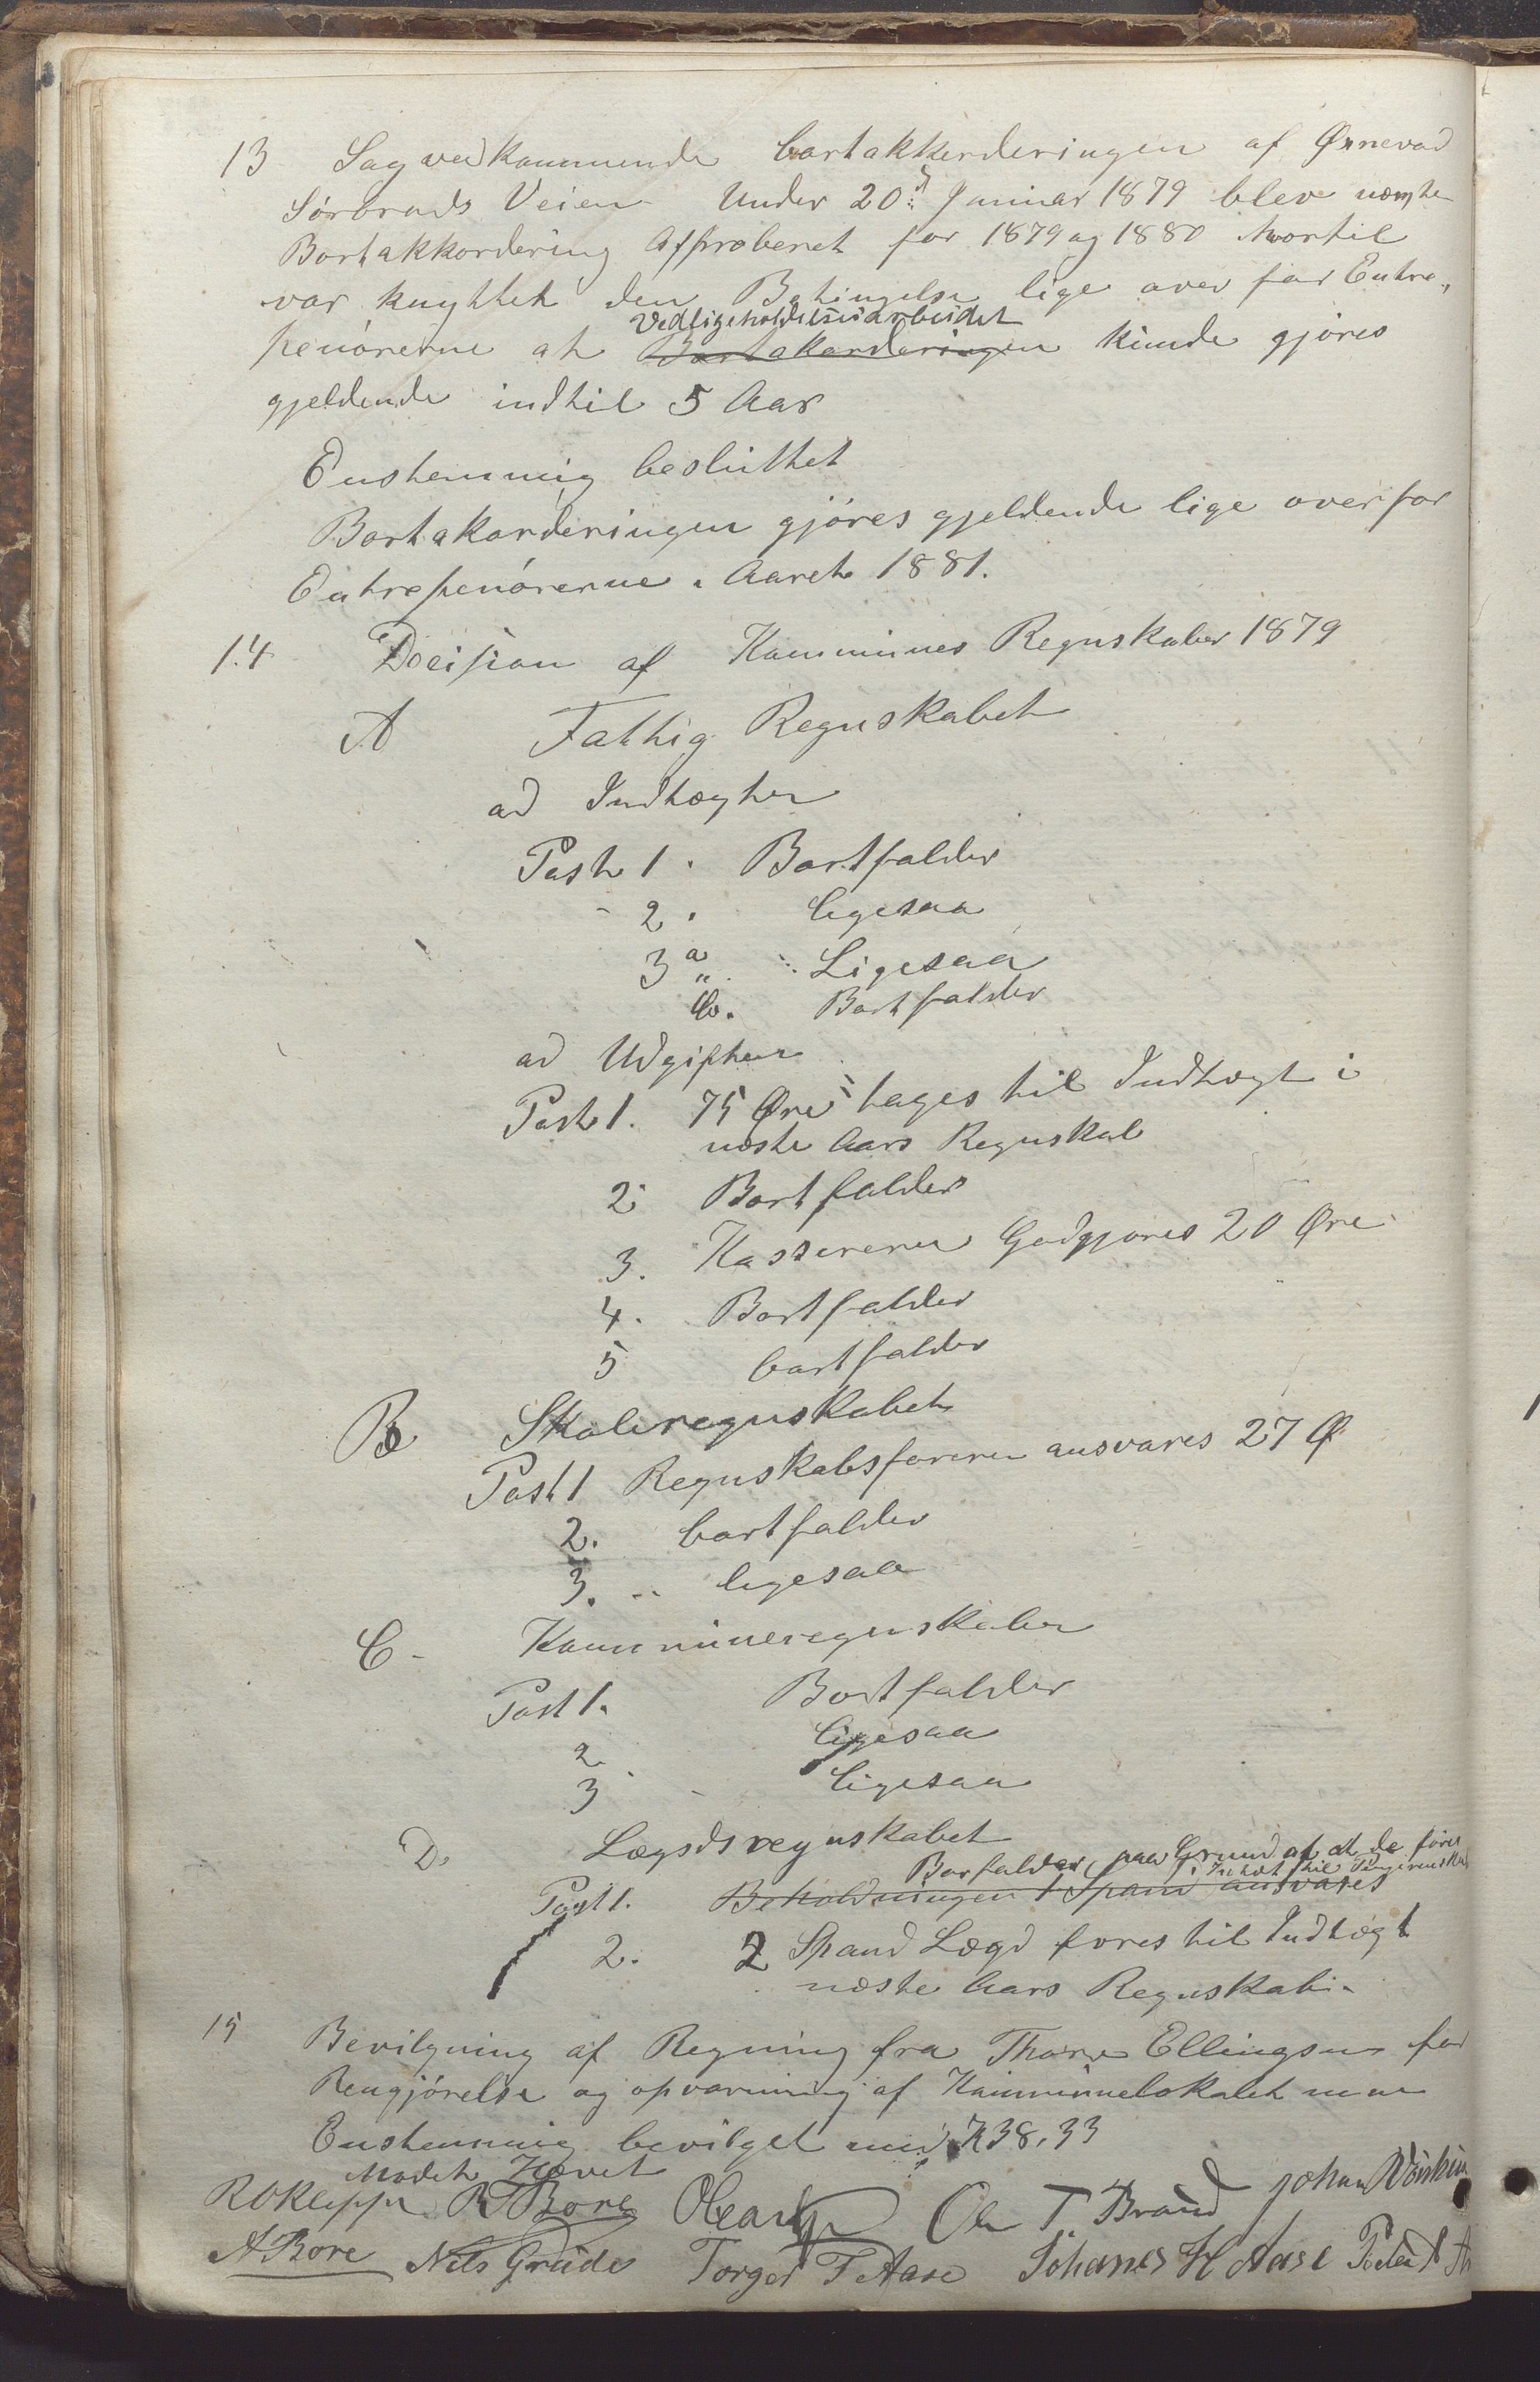 13 Sag vedkommende bortakkorderingen af Ørnevad
Sörbrøds Veien. Under 20d Januar 1879 blev nævnte
Bortakkordering Afproberet for 1879 og 1880 hvortil
var knyttet den Betingelse lige over for Entre„
penörerne at Vedligeholdelsesarbeidet Bortakorderingen kunde gjöres
gjeldende indtil 5 Aar
Enstemmig besluttet
Bortakorderingen gjöres gjeldende lige overfor
Entrepenörerne. Aaret 1881.
14. Decision af Kommunes Regnskaber 1879
A Fattig Regnskabet
ad Indtægter
Post 1. Bortfalder
- 2. ligesaa
3 a „ Ligesaa
b. Bortfalder
ad Udgifter
Post 1. 75 Øre tages til Indtægt i
næste Aars Regnskab
2. Bortfalder
3. Kassereren Godgjøres 20 Øre
4. Bortfalder
5 bortfalder
B Skoleregnskabet
Post 1 Regnskabsføreren ansvares 27 Ø
2. bortfalder
3. " ligesaa
C - Kommuneregnskabet
Post 1. Bortfalder
2. ligesaa
3 - ligesaa
D. Lægdsregnskabet
Borfalder, paa Grund af at de føres
i Indtæt til
Post 1. Beholdningen 1 Spand ansvares
2. 2 Spand Lægd føres til Indtægt
næste Aars Regnskab.
15 Bevilgning af Regning fra Thore Ellingsen for
Rengjörelse og opvarming af Kommunelokalet
Enstemmig bevilget med K 38,33
Mødet Hævet
R O Klepp R T Bore Ole T Braud Johan
A Bore Nils Grude Torger T Aase Johanes H Aase Peder